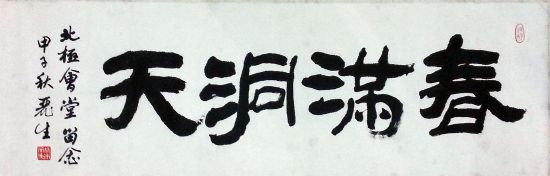 春滿洞天
北極會堂留念
甲子秋 麗生